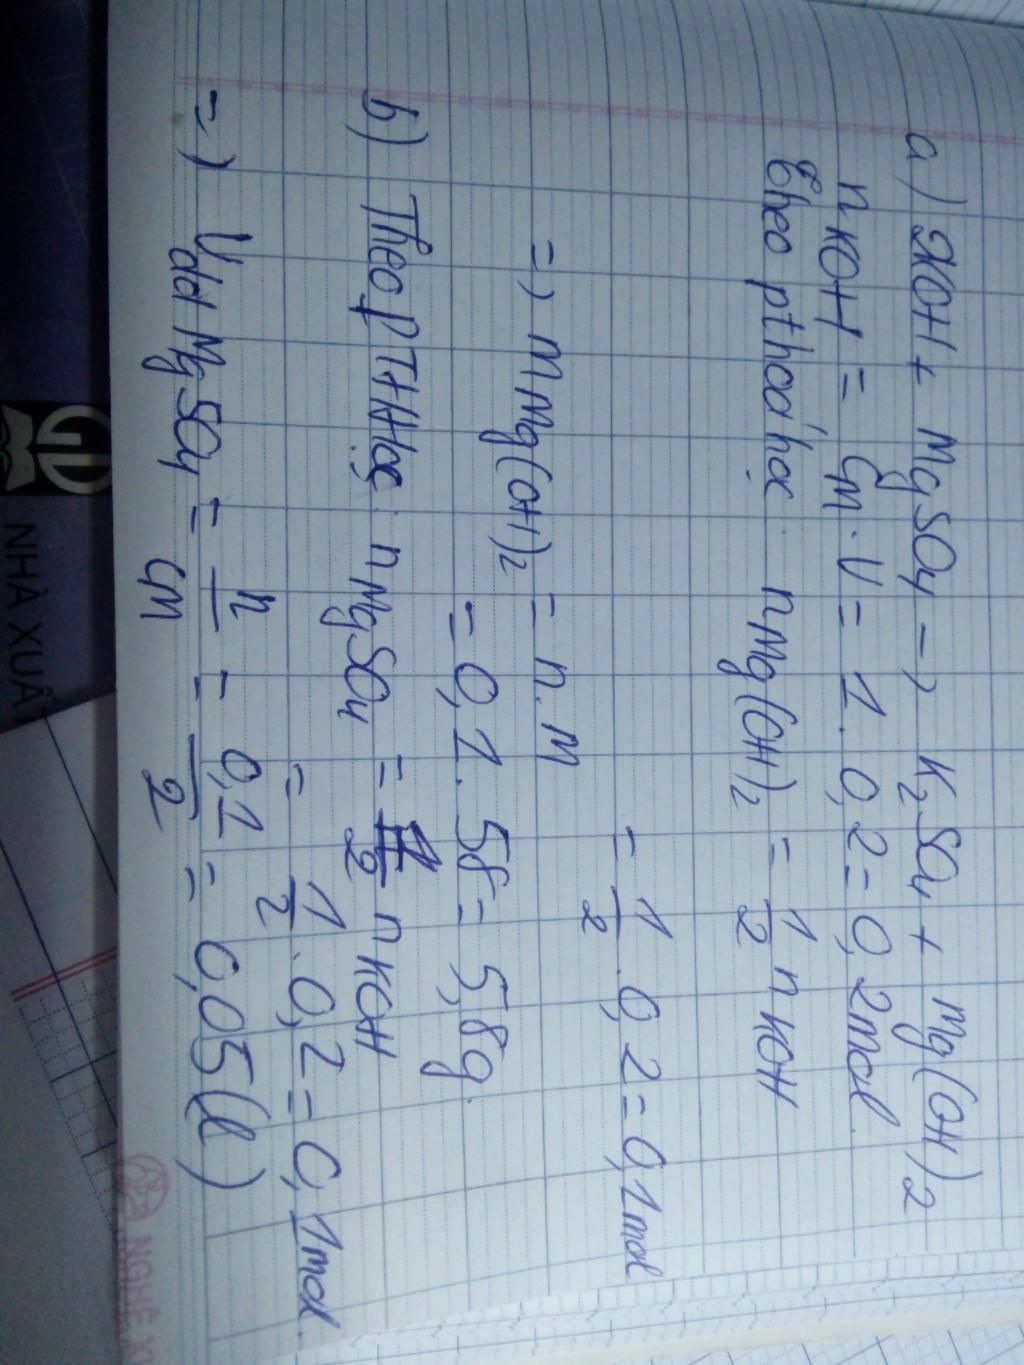 a) 2KOH + MgSO4 -> K2SO4 + Mg(OH)2
nKOH = CM . V = 1 . 0,2 = 0,2mol
theo pt hoá học : nMg(OH)2 = 1/2 nKOH
= 1/2 . 0,2 = 0,1mol
=> mMg(OH)2 = n.M
= 0,1 . 58 = 5,8g.
b) Theo PTHHọc : nMgSO4 = 1/2 nKOH
= 1/2 . 0,2 = 0,1mol
=> Vdd MgSO4 = n/CM = 0,1/2 = 0,05(l)
NHÀ XUẤ
NGHÊ